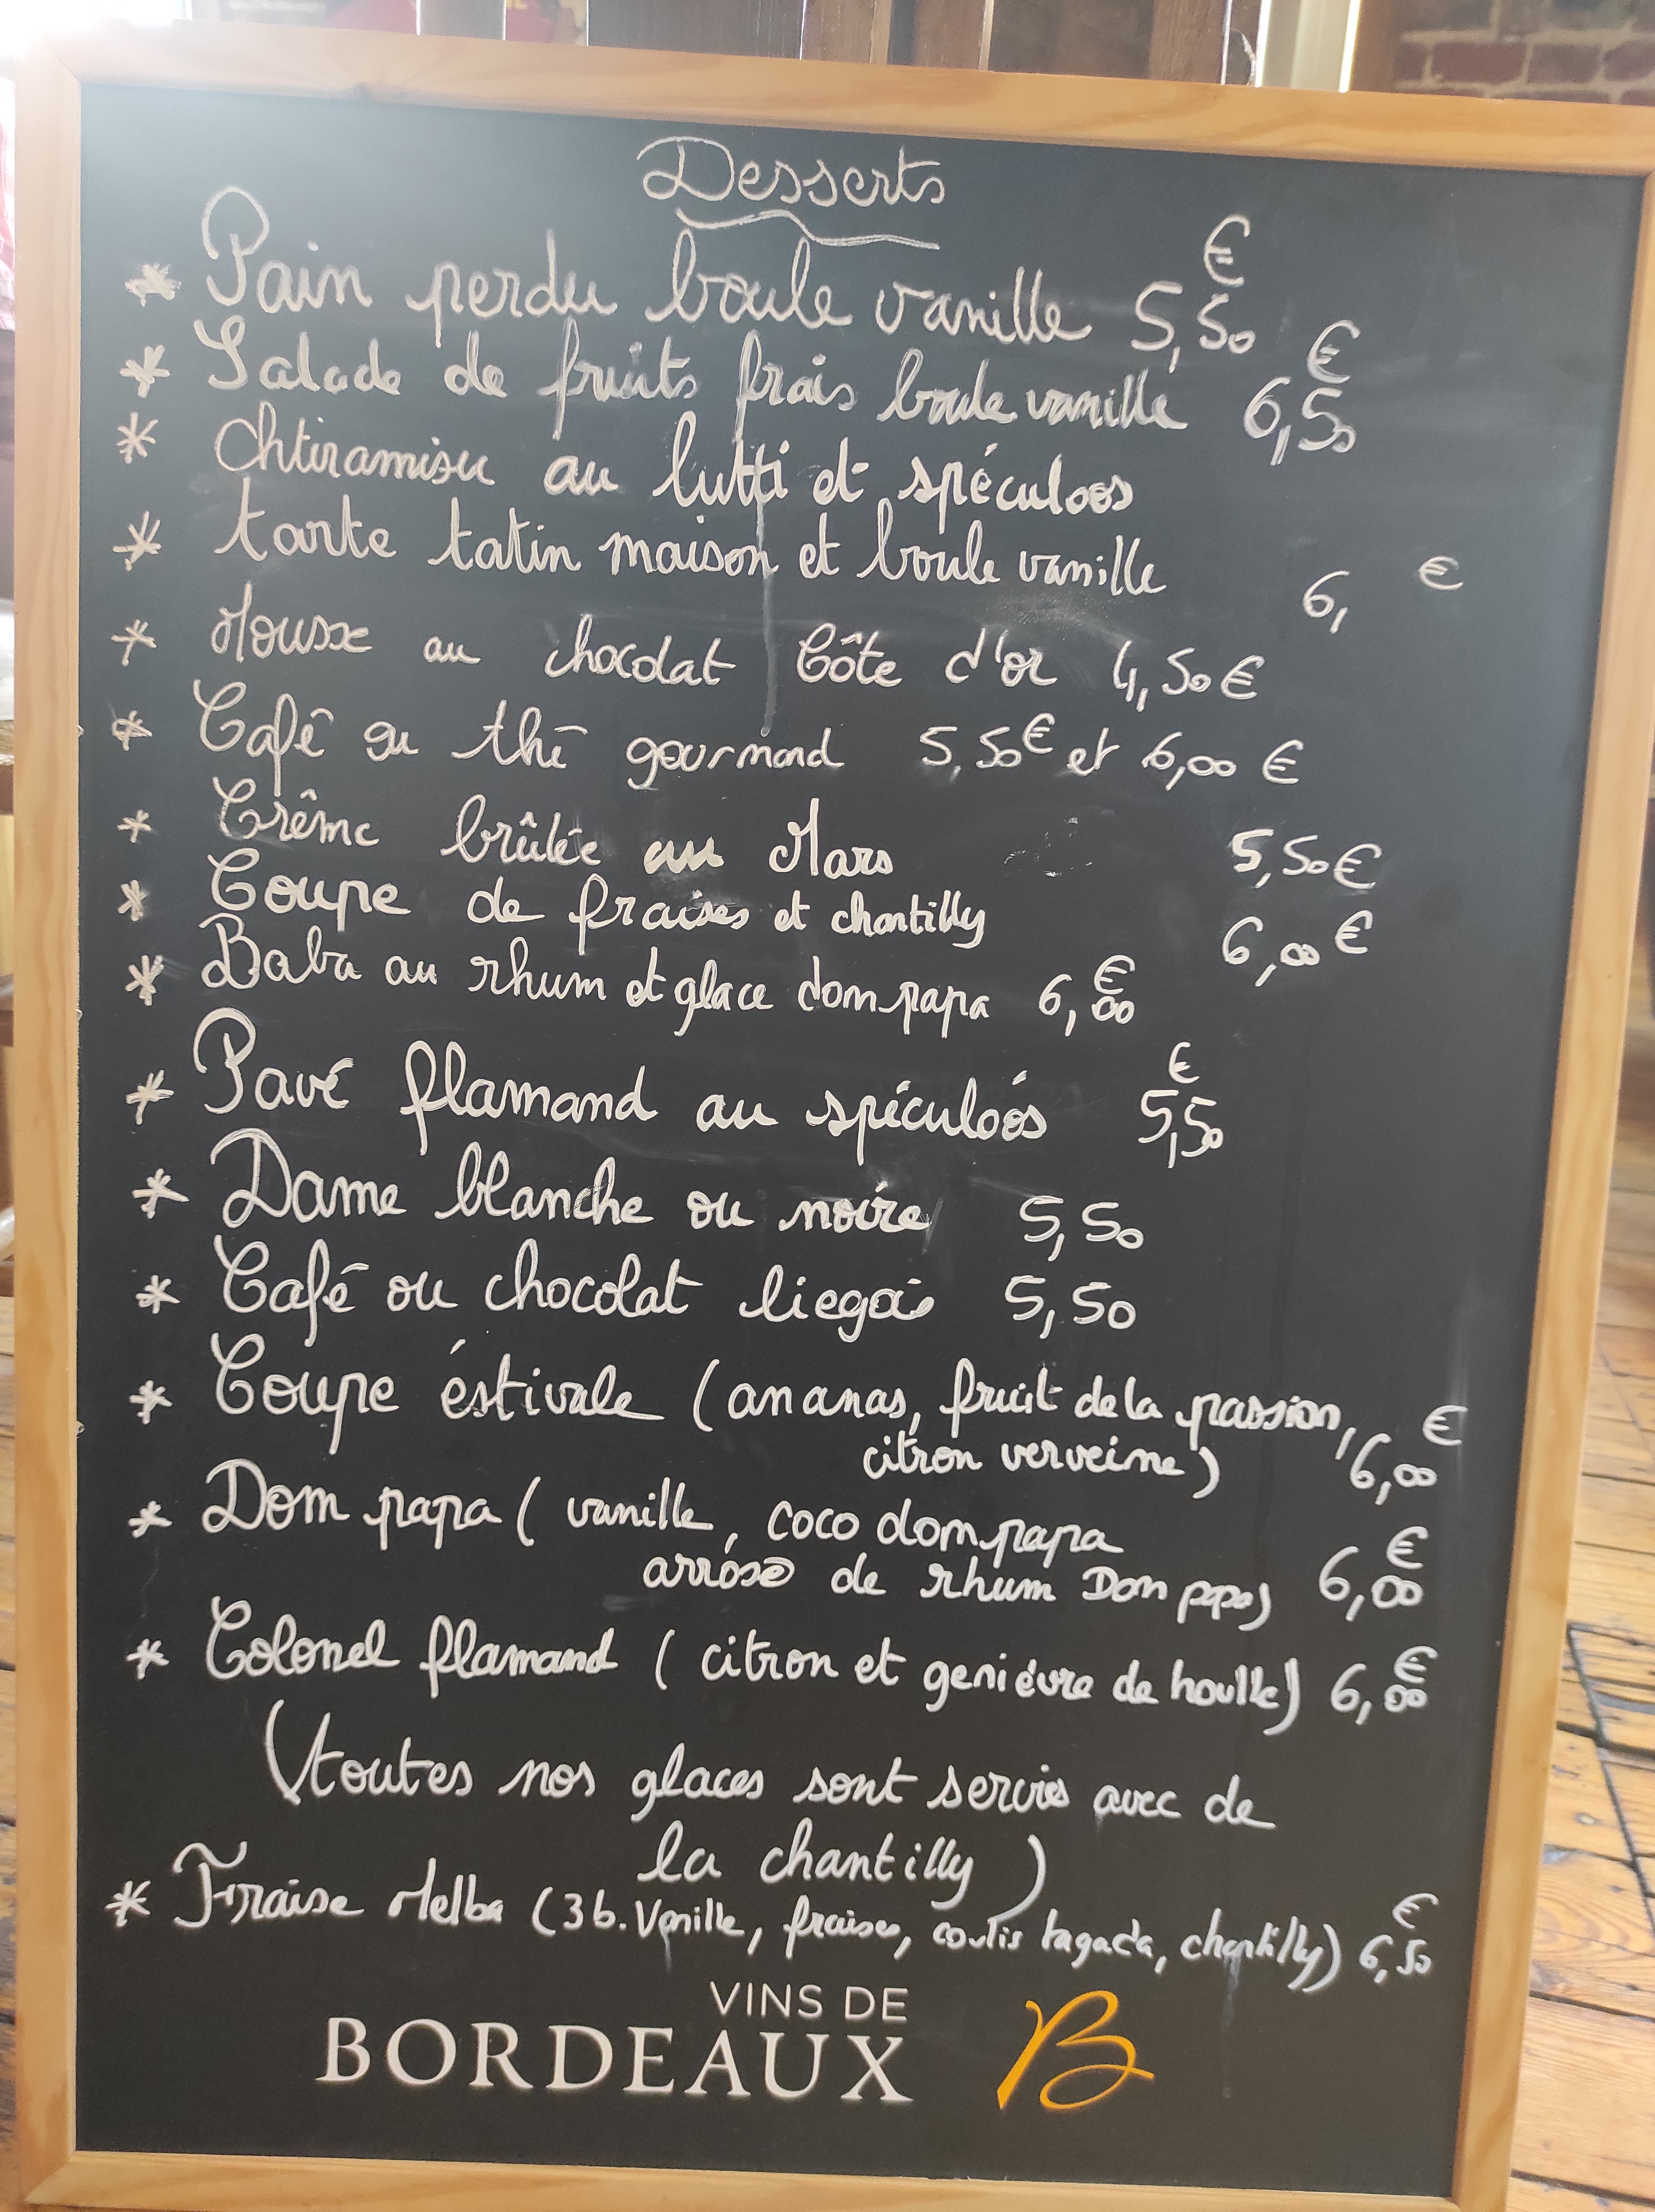 Desserts
* Pain perdu boule vanille 5,50 €
* Salade de fruits frais boule vanille 6,50 €
* Chtiramisu au lutti et spéculoos
* tarte tatin maison et boule vanille 6, €
* Mousse au chocolat Côte d'or 4,50 €
* Café ou thé gourmand 5,50€ et 6,00 €
* Crême brûlée au Mars 5,50€
* Coupe de fraises et chantilly 6,00€
* Baba au rhum et glace dom papa 6,00 €
* Pavé flamand au spéculoós 5,50 €
* Dame blanche ou noire 5,50
* Café ou chocolat liegois 5,50
* Coupe éstivale (ananas, fruit de la passion,
citron verveine) 6,00 €
* Dom papa (vanille, coco dom papa
arrósé de rhum Dom papa) 6,00 €
* Colonel flamand (citron et geniévre de houlle) 6,00 €
(toutes nos glaces sont servis avec de
la chantilly)
* Fraise Melba (3 b. Vanille, fraises, coulis tagada, chantilly) 6,50 €
VINS DE
BORDEAUX B